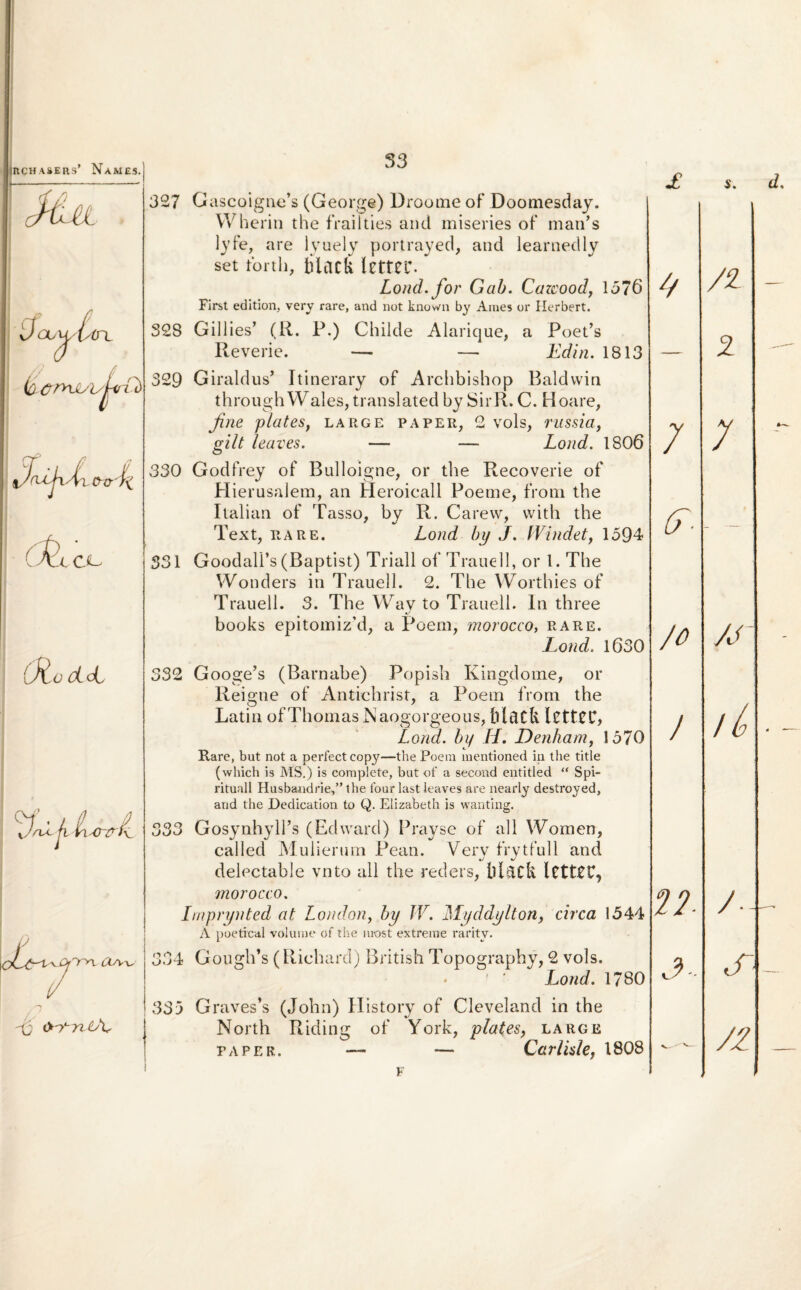 33
RCHASERS' NAMES.
£ s. d.
Hill
327 Gascoigne's (George) Droome of Doomesday.
Wherin the frailties and miseries of man's
lyfe, are lyuely portrayed, and learnedly
set forth, black letter.
Lond. for Gab. Cawood, 1576 4 12 —
First edition, very rare, and not known by Ames or Herbert.
328 Gillies' (R. P.) Childe Alarique, a Poet's
Reverie. — — Edin. 1813 — 2 —
329 Giraldus' Itinerary of Archbishop Baldwin
through Wales, translated by Sir R. C. Hoare,
fine plates, LARGE PAPER, 2 vols, russia,
gilt leaves. — — Lond. 1806 7 7 —
Triphook
330 Godfrey of Bulloigne, or the Recoverie of
Hierusalem, an Heroicall Poeme, from the
Italian of Tasso, by R. Carew, with the
Text, RARE. Lond by J. Windet, 1594 6. — 
Rice
331 Goodall's (Baptist) Triall of Trauell, or 1. The
Wonders in Trauell. 2. The Worthies of
Trauell. 3. The Way to Trauell. In three
books epitomiz'd, a Poem, morocco, RARE.
Lond. 1630 10 15 -
Rodd
332 Googe's (Barnabe) Popish Kingdome, or
Reigne of Antichrist, a Poem from the
Latin of Thomas Naogorgeous, black letter,
Lond. by H. Denham, 1570 1 16 . —
Rare, but not a perfect copy—the Poem mentioned in the title
(which is MS.) is complete, but of a second entitled “ Spi-
rituall Husbandrie,” the four last leaves are nearly destroyed,
and the Dedication to Q. Elizabeth is wanting.
Triphook
333 Gosynhyll's (Edward) Prayse of all Women,
called Mulierum Pean. Very frytfull and
delectable vnto all the reders, black letter,
morocco.
Imprynted at London, by W. Myddylton, circa 1544 22. 1. -
A poetical volume of the most extreme rarity.
334 Gough's (Richard) British Topography, 2 vols.
Lond. 1780 3.. 5 —
335 Graves's (John) History of Cleveland in the
North Riding of York, plates, LARGE
PAPER. — — Carlisle, 1808 - - 12 —
F